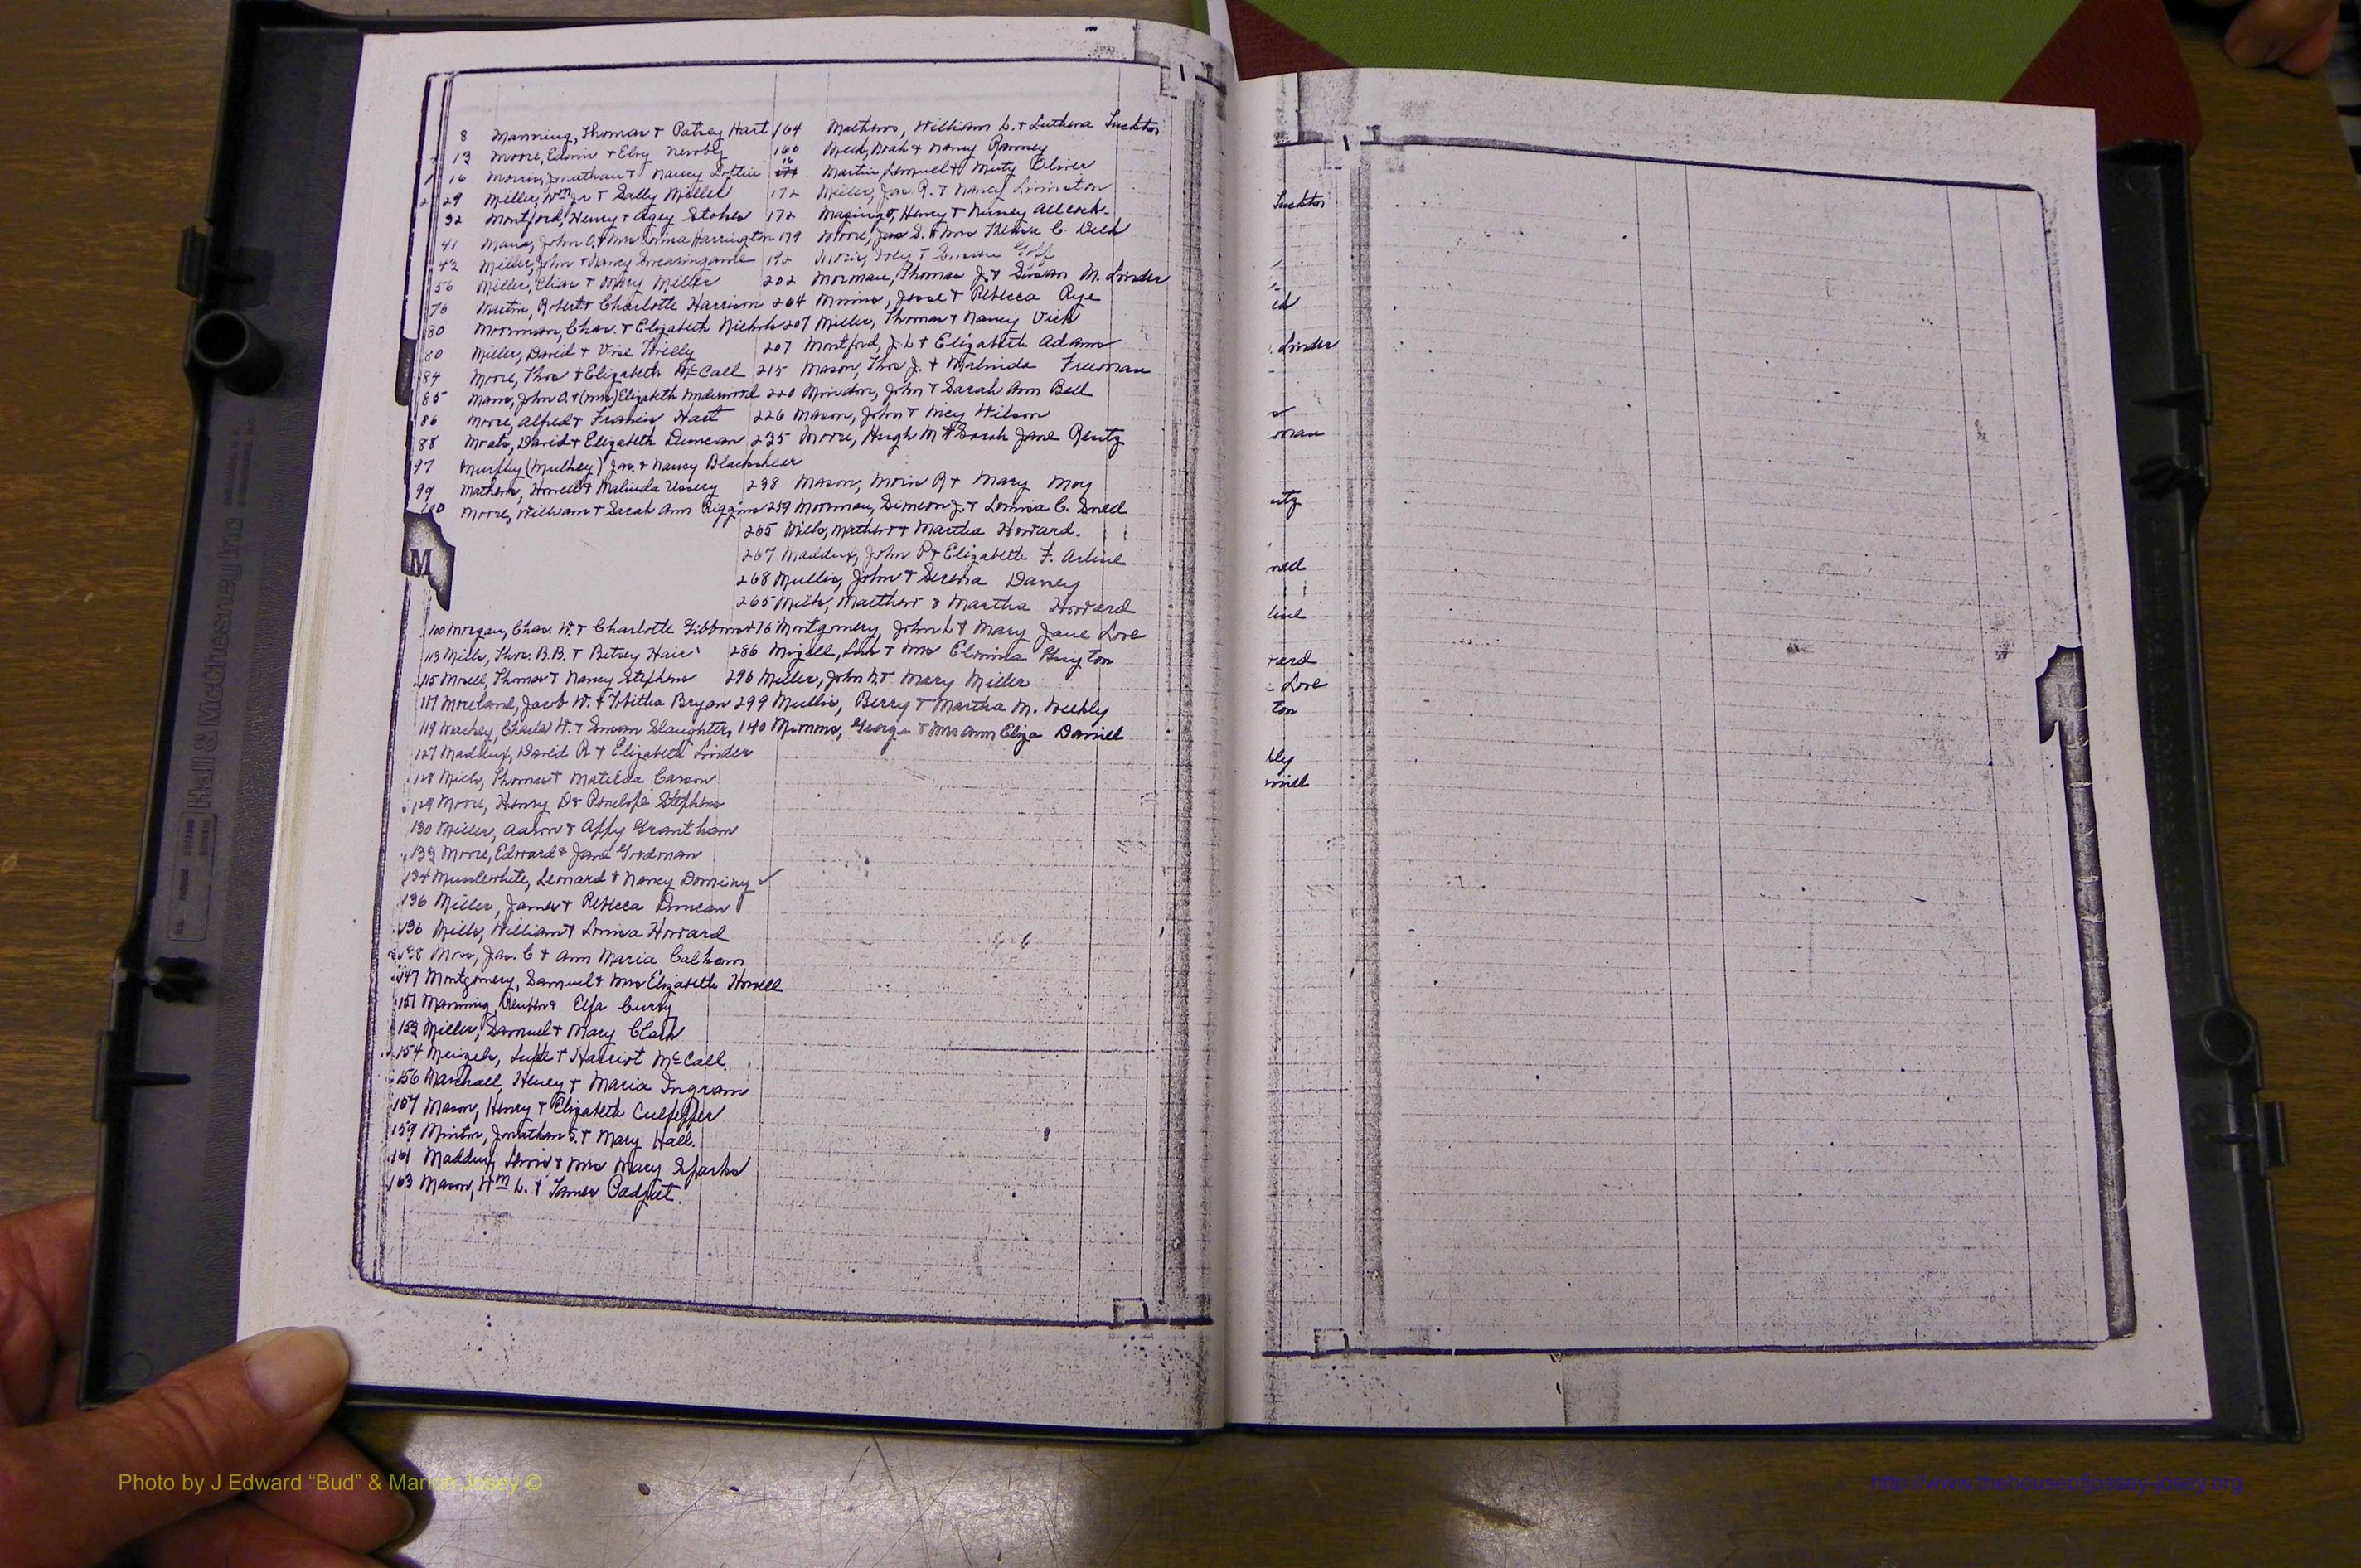 8 Manning, Thomas + Patsey Hart
13 Moore, Edwin + Elvy Newby
16 Morris, Jonathan + Nancy Loftin
29 Miller, Wm Jr + Sally Miller
32 Montford, Henry + Agey Stokes
41 Mann, John O. + Mrs Harrington
42 Miller, John + Nancy Swearingame
56 Miller, Elias + Mary Miller
76 Robert + Charlotte Harrison
80 Moorman, Chas. + Elizabeth Nichols
80 Miller, David +
84 Moore, Thos + Elizabeth McCall
85 Mann, John O. + (Mrs) Elizabeth Underwood
86 Moore, Alfred + Francis Hart
88 Moats, David + Elizabeth Duncan
97 Murfhy (Mulhey) Jas. + Nancy Blackshear
99 Mathews, Howell + Malinda Ussery
100 Moore, William + Sarah Ann Riggins
M
100 Morgan, Chas. W. + Charlotte Gibbons
113 Mills, Thos. B.B. + Betsey Hair
115 Thomas + Nancy Stephens
117 Moreland, Jacob W. + Tobitha Bryan
119 Mackey, Charles W. + Susan Slaughter
127 Maddux, David R + Elizabeth Linder
128 Mills, Thomas + Matilda Carson
129 Moore, Henry D + Penelope Stephens
130 Miller, Aaron + Affy Grantham
133 Moore, Edward + Jane Goodman
134 Musslewhite, Leonard + Nancy Dominy
136 Miller, James + Rebecca Duncan
136 Mills, William + Lovisa Howard
138 Moss, Jas. C + Ann Maria Calhoun
147 Montgomery, Samuel + Mrs Elizabeth Howell
151 Manning, Reuben + Elfa Curry
153 Miller, Samuel + Mary Clark
154 Meizels, Luke + Harriot McCall
156 Marshall, Henry + Maria Ingram
157 Mason, Henry + Elizabeth Culpepper
159 Minton, Jonathan S. + Mary Hall
161 Maddux, Lewis + Mrs Mary Sparks
163 Mason, Wm L. + Padget
164 Mathews, William L. + Luthera
160 Noah + Nancy Ranney
16 Martin, Lemuel + Misty Oliver
172 Miller, Jas. R. + Nancy Livinston
172 Henry + Allcock
179 Moore, Jas S. + Mrs C. Delk
192 Goff
202 Morman, Thomas J. + Susan M. Linder
204 Mimms, Jesse + Rebecca Rye
207 Miller, Thomas + Nancy Vick
207 Montford, J L + Elizabeth Adams
215 Mason, Thos J. + Malinda Freeman
220 John + Sarah Ann Bell
226 Mason, John + Wilson
235 Moore, Hugh M + Sarah Jane Rentz
238 Mason, R + Mary Moy
259 Moorman, Simeon J. + Lovinia C. Snell
265 Mills, Mathew + Martha Howard
267 Maddux, John P + Elizabeth F. Arline
268 Mullis, John + Serena Daney
265 Mills, Matthew & Martha Howard
276 Montgomery, John L + Mary Jane Love
286 Mizell, Luke + Mrs
296 Miller, John N + Mary Miller
299 Mullis, Berry + Martha M. Weekly
140 Mimms, George + Mrs Ann Eliza Daniel
Linder
Love
ton
bly
Hall & McChesney Inc
Photo by J Edward “Bud” & Marion Josey ©
http://www.thehouseofjossey-josey.org